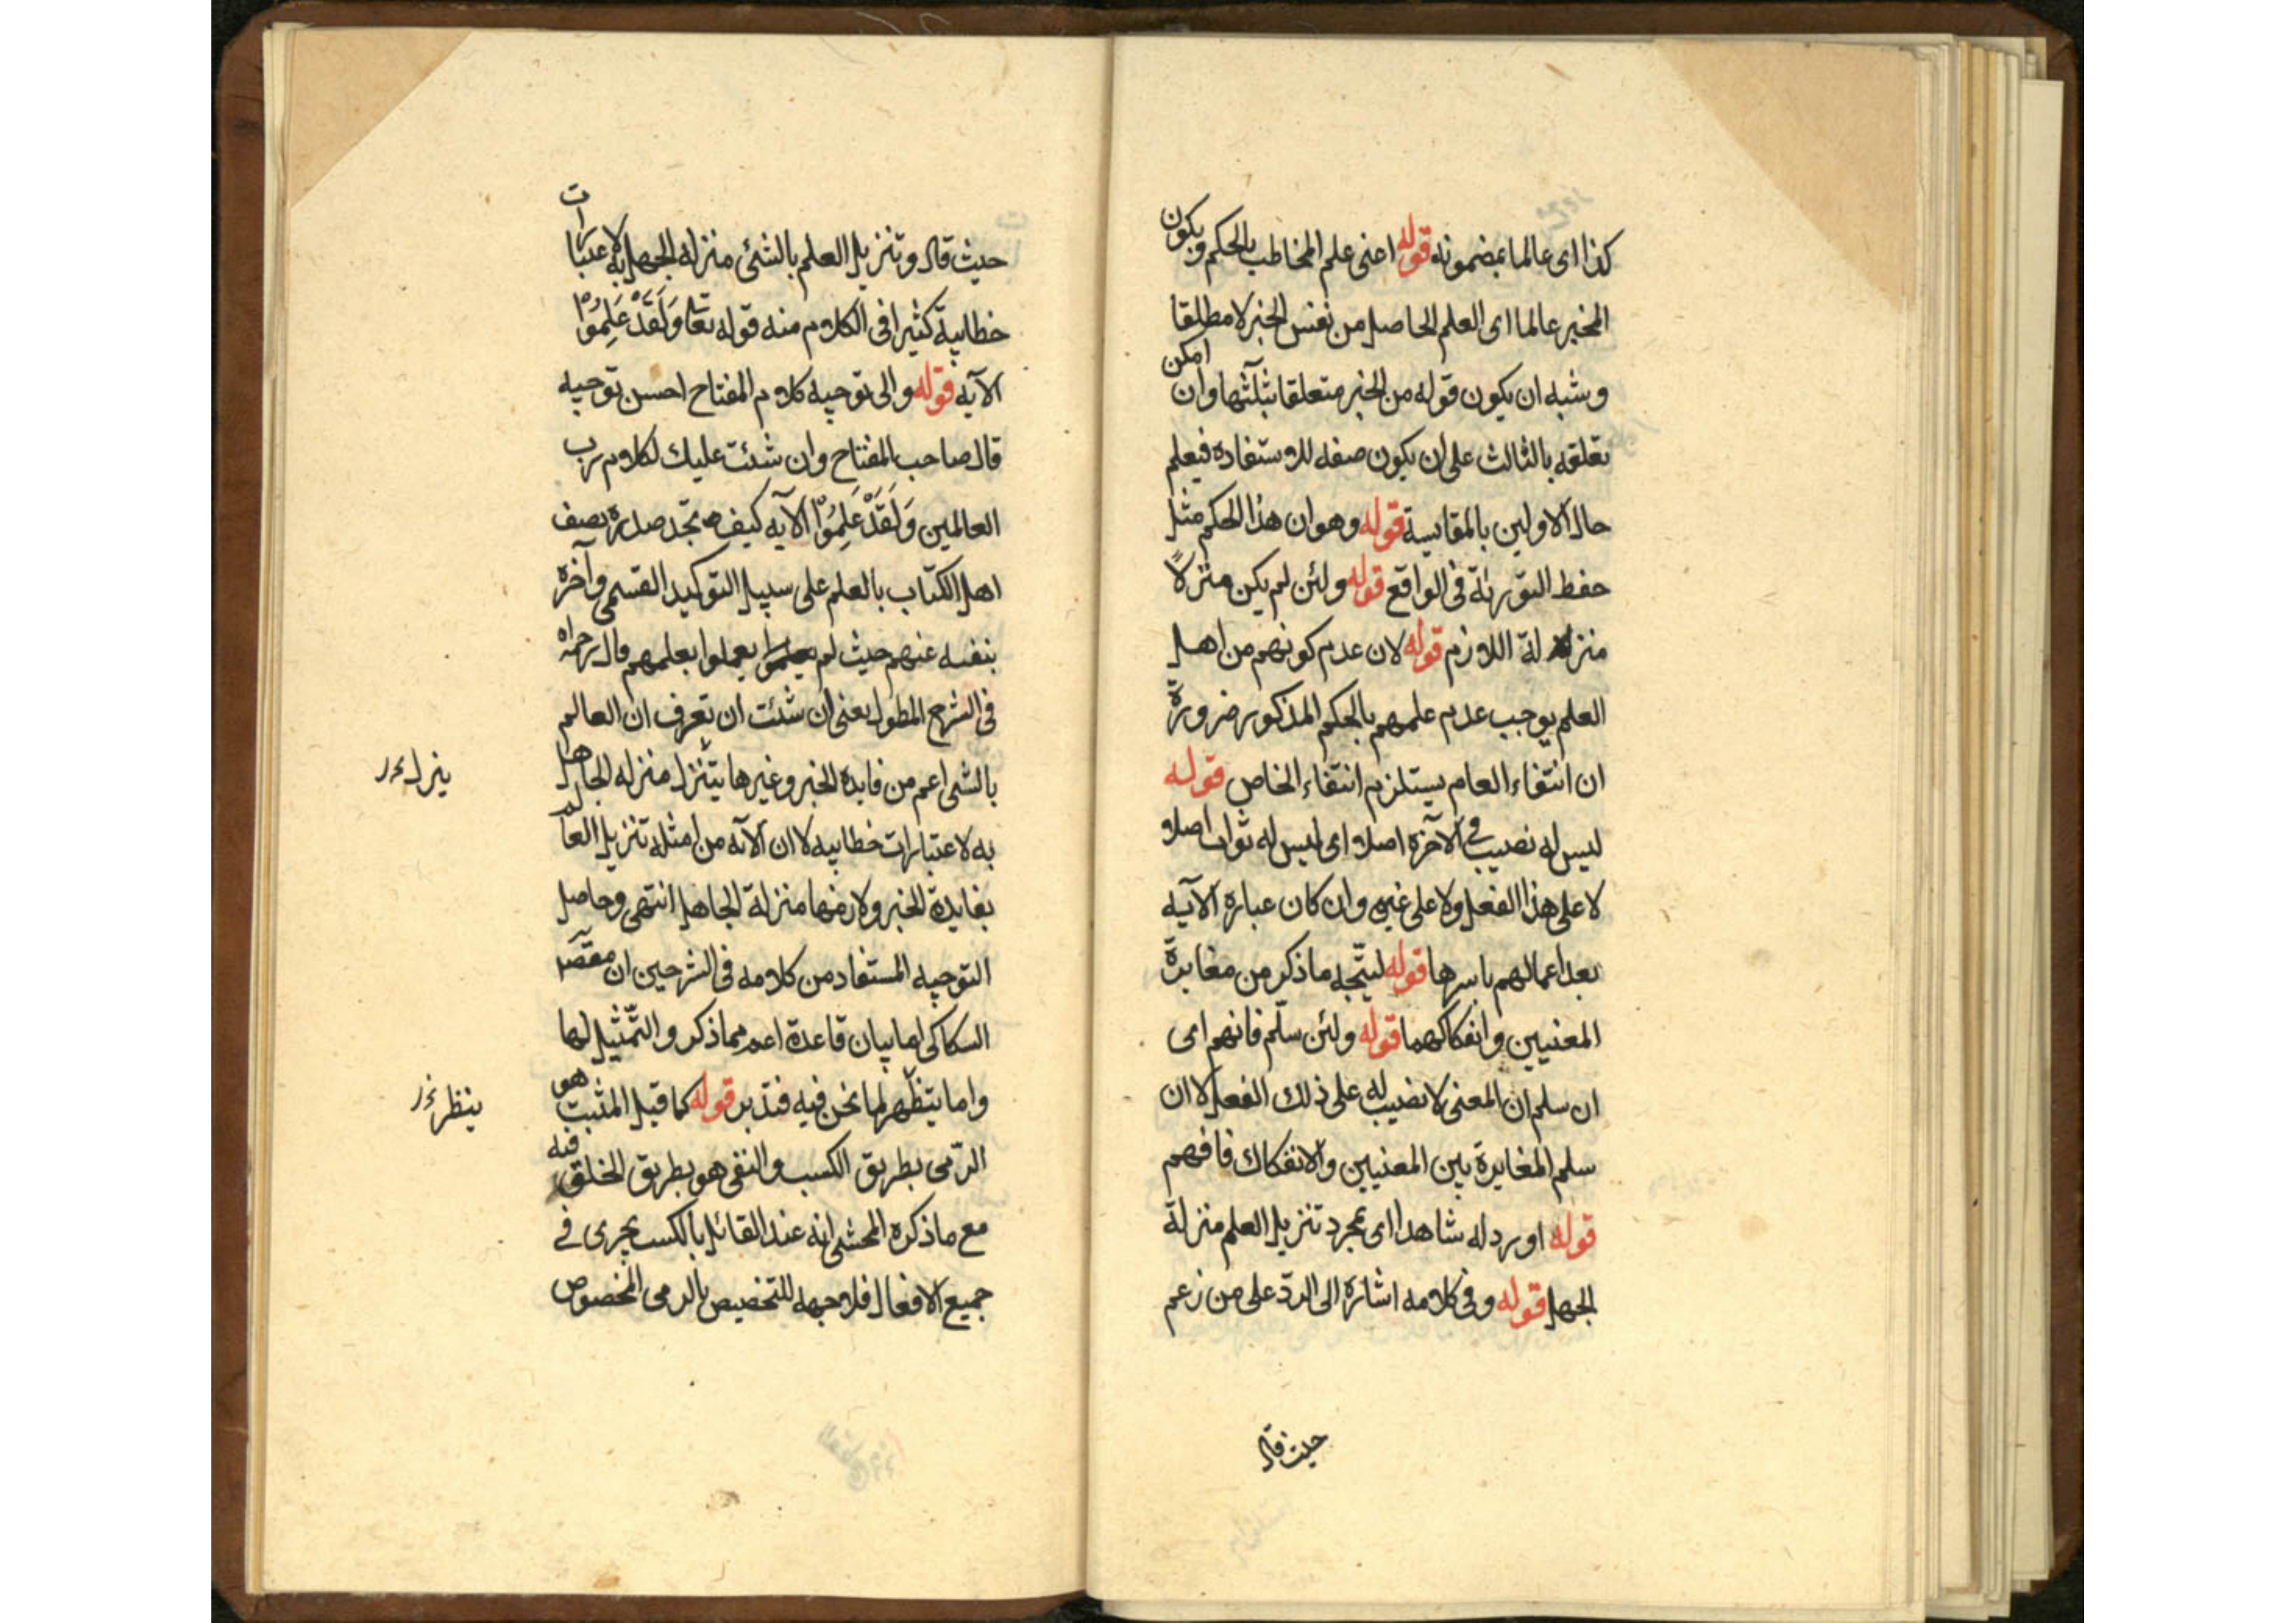 كذا اى عالما بمضمونه قوله اعنى علم المخاطب بالحكم ويكون
المخبر عالما اى العلم الحاصل من نفس الخبر لا مطلقا
وشبه ان يكون قوله من الخبر متعلقا بثلثتها وان امكن
تعلقه بالثالث على ان يكون صفه للاستفاده فيعلم
حال الاولين بالمقايسة قوله وهو ان هذا الحكم مثل
حفظ التورية فى الواقع قوله ولئن لم يكن منزلاً
منزلة اللازم قوله لان عدم كونهم من اهل
العلم يوجب عدم علمهم بالحكم المذكور ضرورة
ان انتفاء العام يستلزم انتفاء الخاص قوله
ليس له نصيب فى الآخرة اصلا اى ليس له ثواب اصلا
لا على هذا الفعل ولا على غيره وان كان عبارة الآيه
بعد اعمالهم باسرها قوله ليتّجه ما ذكر من مغايرة
المعنيين وانفكاكهما قوله ولئن سلّم فانهم اى
ان سلم ان المعنى لا نصيب له على ذلك الفعل لا ان
سلم المغايرة بين المعنيين والانفكاك فافهم
قوله اورد له شاهدا اى بمجرد تنزيل العلم منزلة
الجهل قوله وفى كلامه اشارة الى الردّ على من زعم
حيث قال
حيث قال وتنزيل العلم بالشئ منزله الجهل به لاعتبارات
خطابية كثيرا فى الكلام منه قوله تعا وَلَقَدْ عَلِمُوْا
الآيه قوله والى توجيه كلام المفتاح احسن توجيه
قال صاحب المفتاح وان شئت عليك لكلام رب
العالمين وَلَقَدْ عَلِمُوْا الآيه كيف تجد صدره يصف
اهل الكتاب بالعلم على سبيل التوكيد القسمى وآخره
بنفيه عنهم حيث لم يعملوا بعلمهم قال
فى الشرح المطول يعنى ان شئت ان تعرف ان العالم
بالشئ اعم من فايده الخبر وغيرها يتنزل منزله الجاهل
ينزل
به لاعتبارات خطابيه لا ان الآيه من امثله تنزيل العالم
بفايدة الخبر ولازمها منزلة الجاهل انتهى وحاصل
التوجيه المستفاد من كلامه فى الشرحين ان مقصد
السكاكى اما بيان قاعدة اعم مما ذكر والتّمثيل لها
واما يتنظّهر لما نحن فيه فتدبر قوله كما قيل المثبت هو
ينظر
الرّمى بطريق الكسب والنفى هو بطريق الخلق فيه
مع ما ذكره المحشى انه عند القائل بالكسب يجرى فى
جميع الافعال فلا جهه للتخصيص بالرمى المخصوص